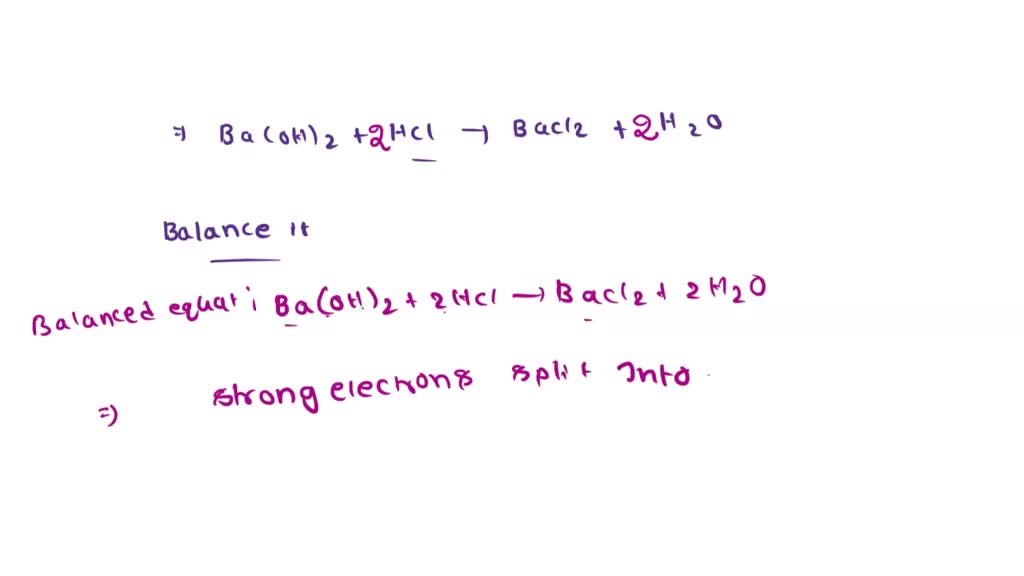 ⇒ Ba(OH)2 + 2HCl → BaCl2 + 2H2O
Balance it
Balanced equat: Ba(OH)2 + 2HCl → BaCl2 + 2H2O
⇒ strong elecrons split Into